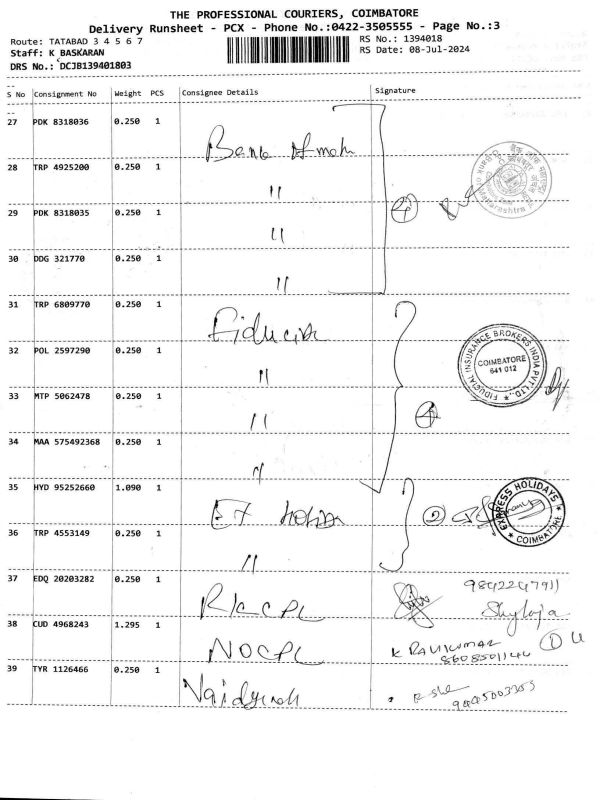 THE PROFESSIONAL COURIERS, COIMBATORE
Delivery Runsheet - PCX - Phone No.:0422-3505555 - Page No.:3
Route: TATABAD 3 4 5 6 7 RS No.: 1394018
Staff: K BASKARAN RS Date: 08-Jul-2024
DRS No.: DCJB139401803
S No Consignment No Weight PCS Consignee Details Signature
27 PDK 8318036 0.250 1
28 TRP 4925200 0.250 1 "
29 PDK 8318035 0.250 1 " 4
30 DDG 321770 0.250 1 "
31 TRP 6809770 0.250 1
32 POL 2597290 0.250 1 " FIDUCIAL INSURANCE BROKERS INDIA PVT LTD., COIMBATORE 641 012
33 MTP 5062478 0.250 1 " 4
34 MAA 575492368 0.250 1 "
35 HYD 95252660 1.090 1 2 EXPRESS HOLIDAYS COIMBATORE
36 TRP 4553149 0.250 1 "
37 EDQ 20203282 0.250 1 9842247911
Shylaja
38 CUD 4968243 1.295 1 NOCPL K RAVIKUMAR 1
8608501144
39 TYR 1126466 0.250 1